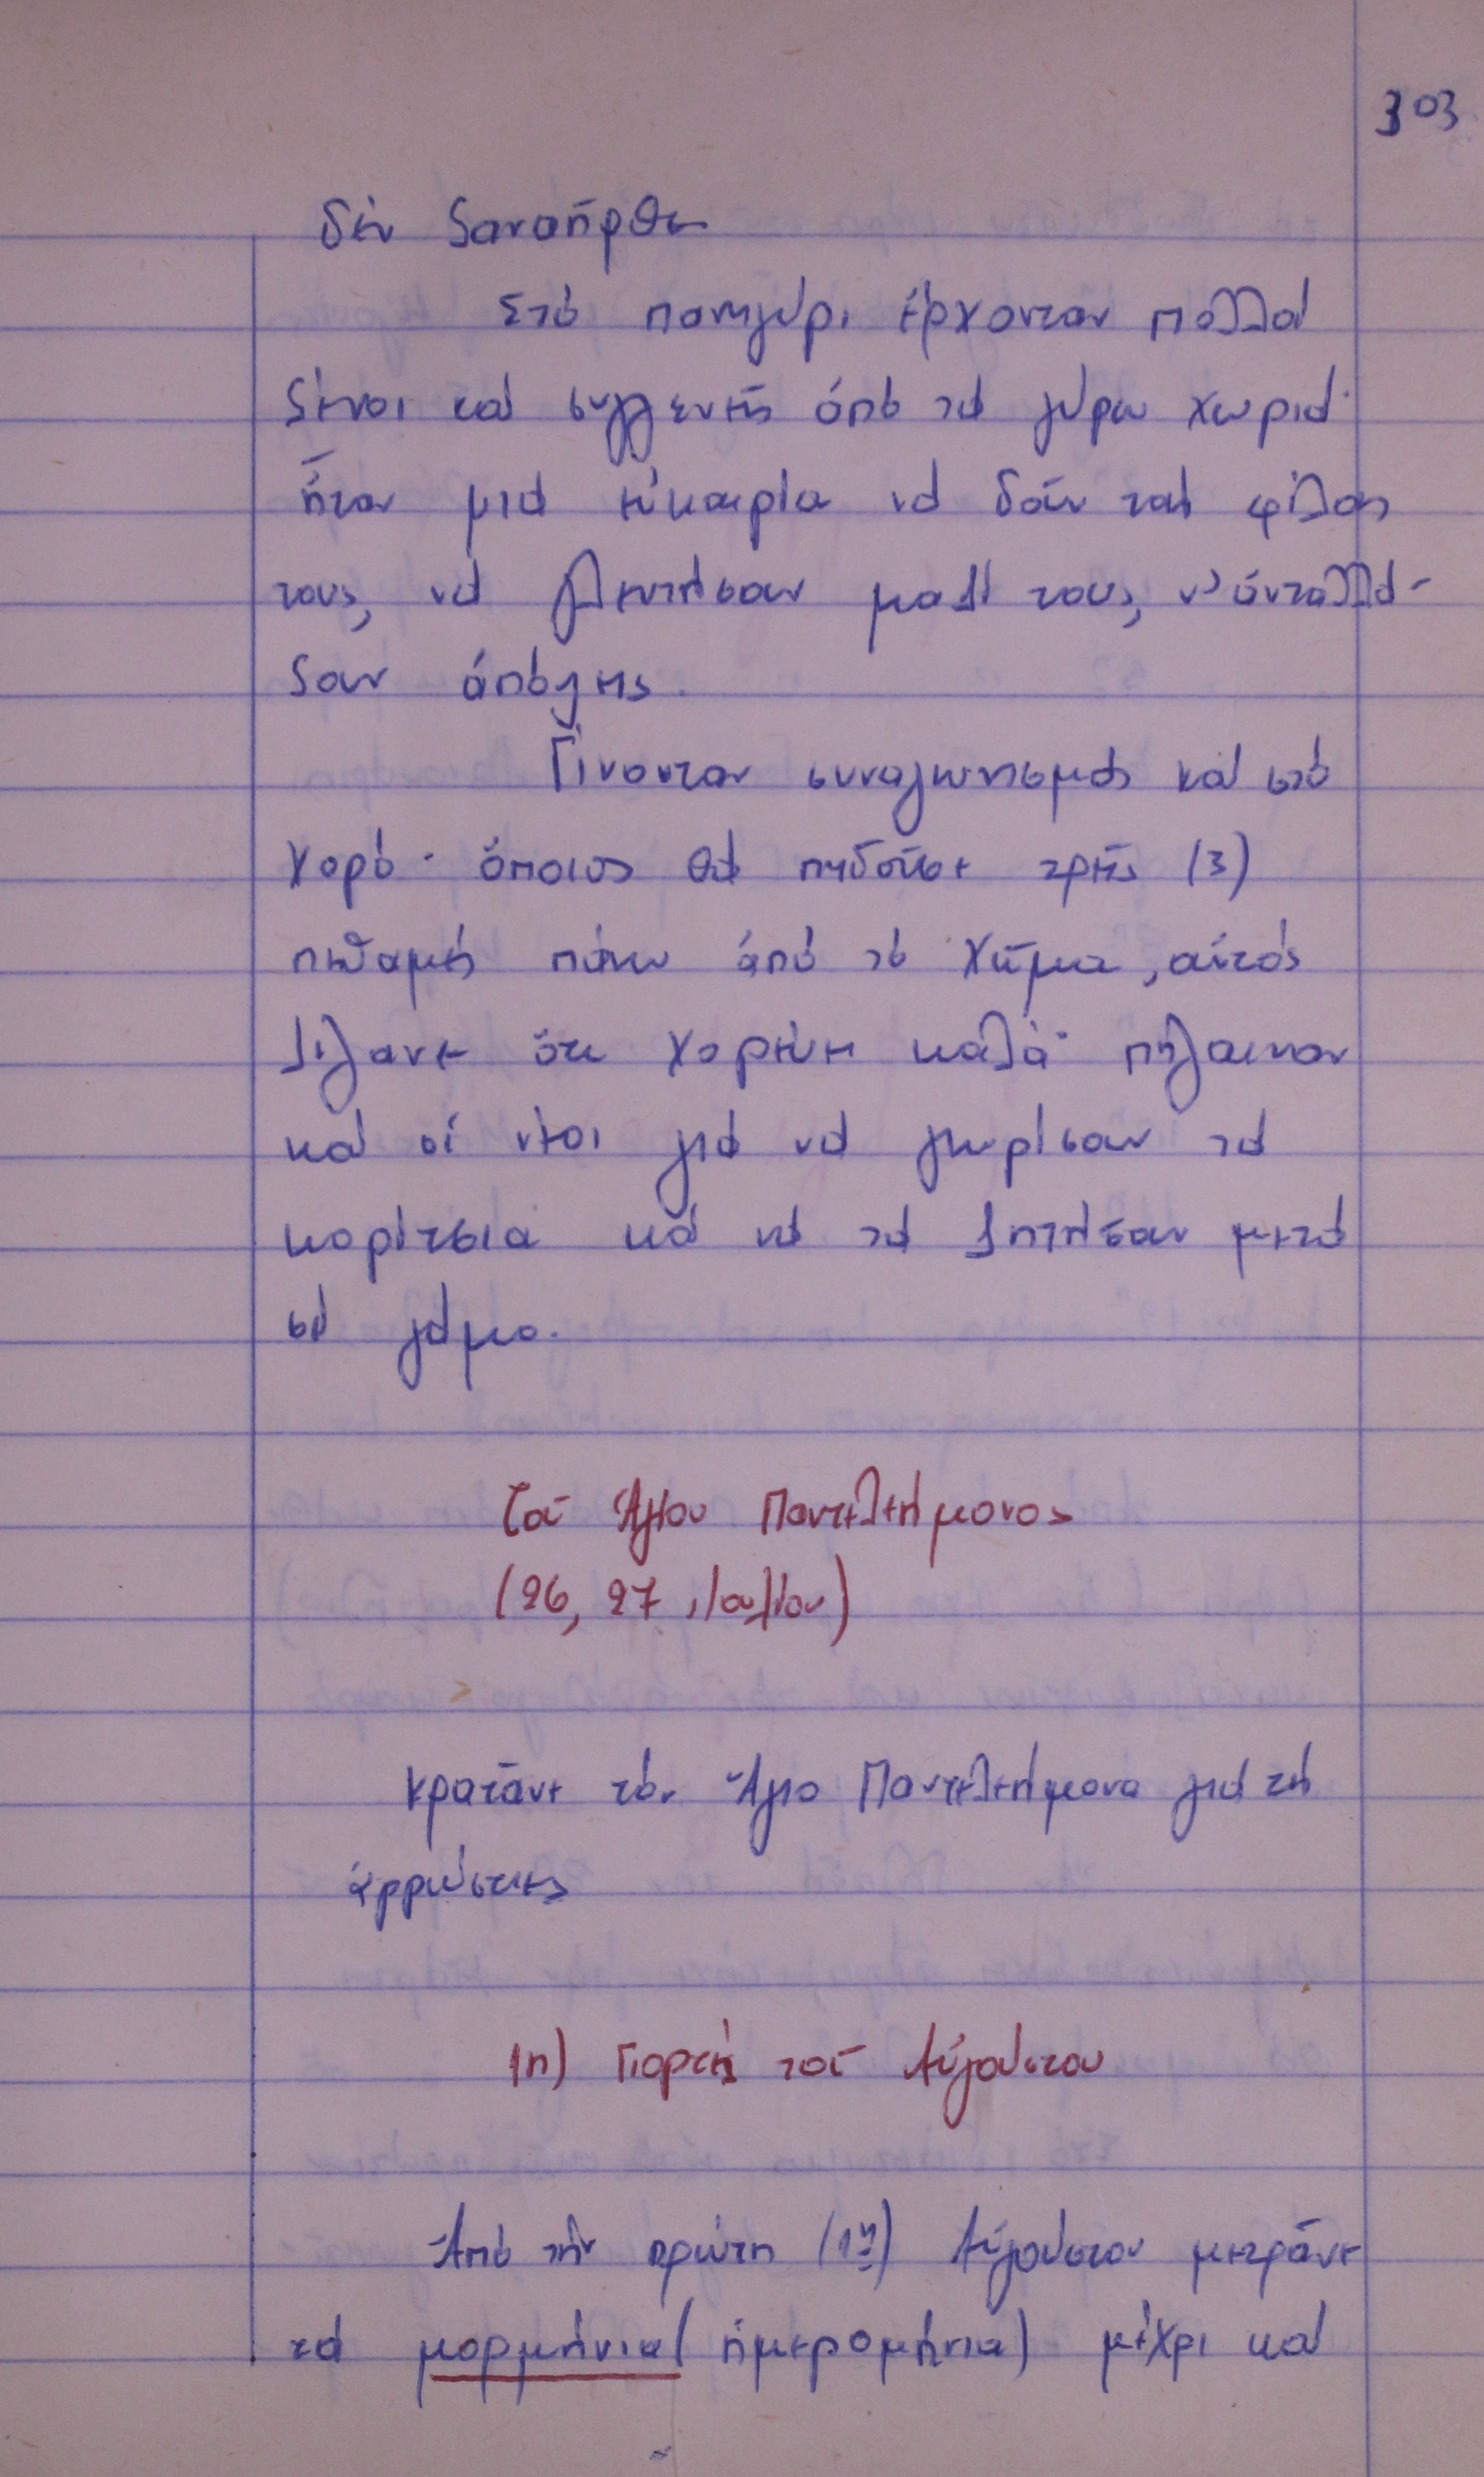 303
δέν ξαναῆρθε
Στό πανηγύρι ἔρχονταν πολλοί
ξένοι καί συγγενεῖς ἀπό τά γύρω χωριά·
ἦταν μιά εὐκαιρία νά δοῦν τούς φίλους
τους, νά γλεντήσουν μαζί τους, ν' ἀνταλλά-
ξουν ἀπόψεις.
Γίνονταν συναγωνισμός καί στό
χορό· ὅποιος θά πηδοῦσε τρεῖς (3)
πιθαμές πάνω ἀπό τό χῶμα, αὐτός
λέγανε ὅτι χορεύει καλά· πήγαιναν
καί οἱ νέοι γιά νά γνωρίσουν τά
κορίτσια καί νά τά ζητήσουν μετά
σέ γάμο.
Τοῦ Ἁγίου Παντελεήμονος
(26, 27 Ἰουλίου)
Κρατᾶνε τόν Ἅγιο Παντελεήμονα γιά τίς
ἀρρώστιες
1η) Γιορτές τοῦ Αὐγούστου
Ἀπό τήν πρώτη (1η) Αὐγούστου μετρᾶνε
τά μορμήνια (ἡμερομήνια) μέχρι καί